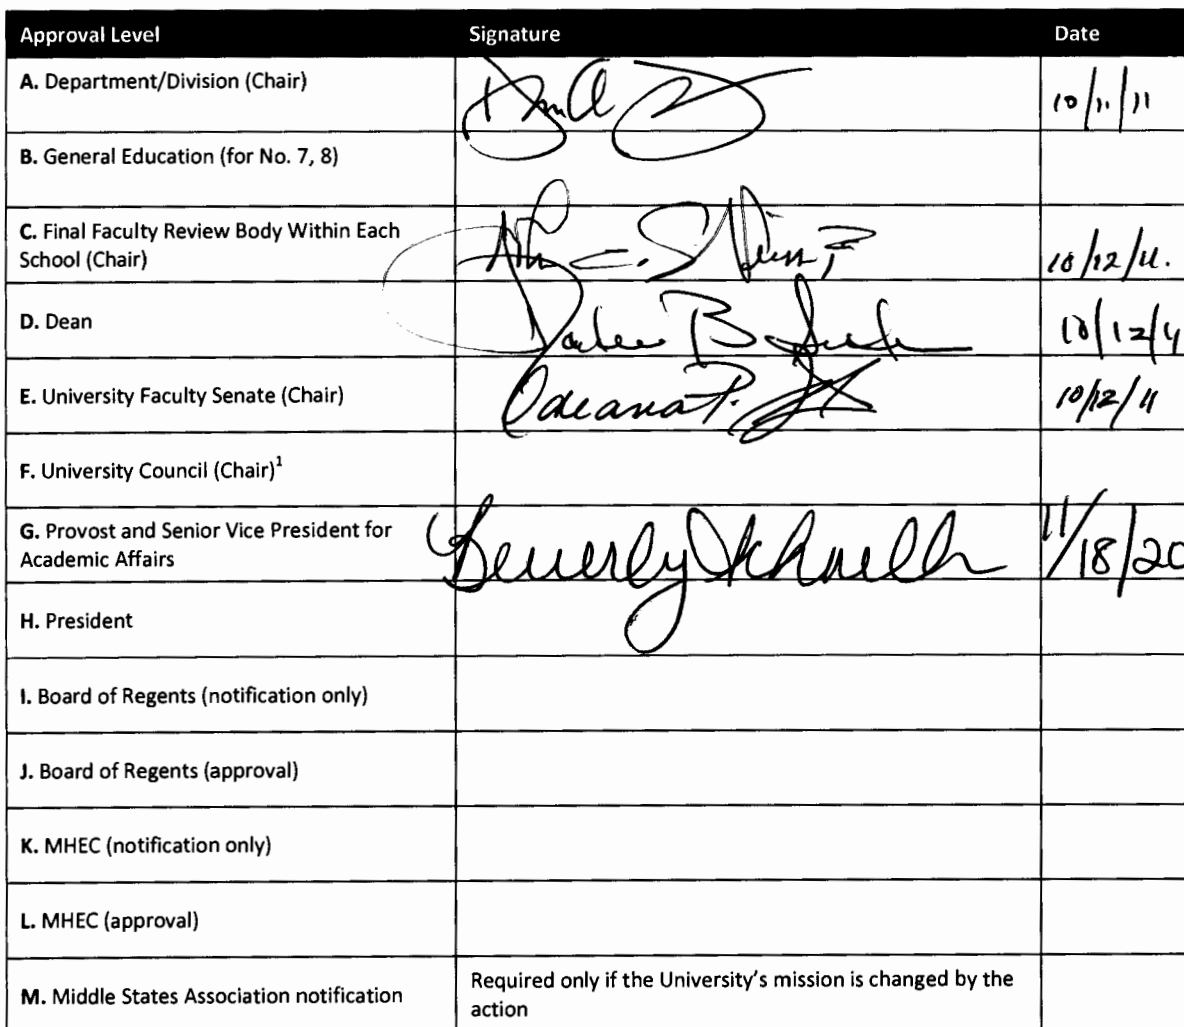 Approval Level Signature Date
A. Department/Division (Chair) 10/11/11
B. General Education (for No. 7, 8)
C. Final Faculty Review Body Within Each
School (Chair) 10/12/11.
D. Dean B 10/12/11
E. University Faculty Senate (Chair) P. 10/12/11
F. University Council (Chair)¹
G. Provost and Senior Vice President for
Academic Affairs Beverly Schnell 11/18/20
H. President
I. Board of Regents (notification only)
J. Board of Regents (approval)
K. MHEC (notification only)
L. MHEC (approval)
M. Middle States Association notification Required only if the University's mission is changed by the
action